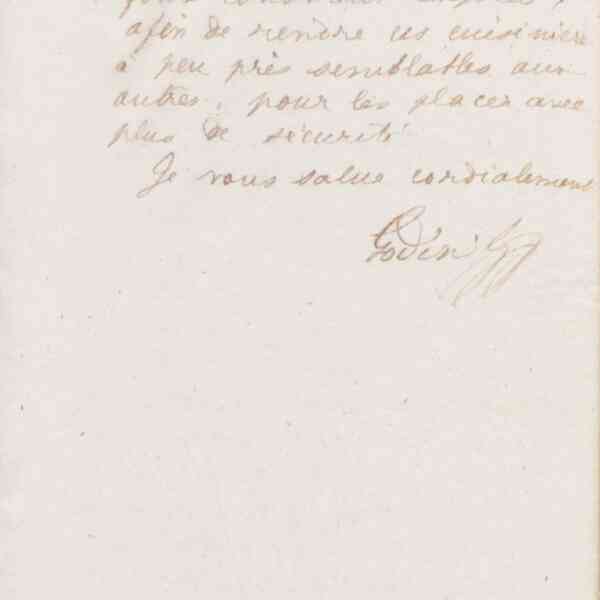 afin de rendre ces cuisinière
à peu près semblables aux
autres, pour les placer avec
plus de sécurité
Je vous salue cordialement
Godin